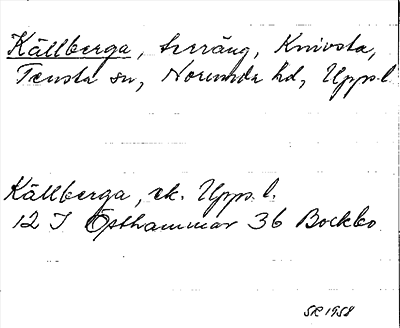 Källberga, terräng, Knivsta,
Tensta sn, Norunda hd, Upps.l.
Källberga, ek. Upps. l.
12 I Östhammar 36 Bockbo
SR 1958